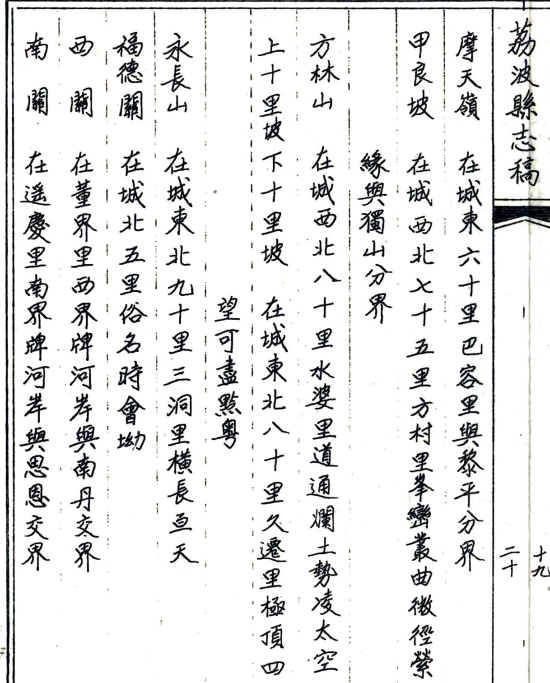 荔波縣志稿
十九
二十
摩天嶺　在城東六十里巴容里與黎平分界
甲良坡　在城西北七十五里方村里峯巒叢曲微徑縈
緣與獨山分界
方林山　在城西北八十里水婆里道通爛土勢凌太空
上十里坡下十里坡　在城東北八十里久遷里極頂四
望可盡黔粵
永長山　在城東北九十里三洞里橫長亘天
福德關　在城北五里俗名時會坳
西關　在董界里西界牌河岸與南丹交界
南關　在遥慶里南界牌河岸與思恩交界